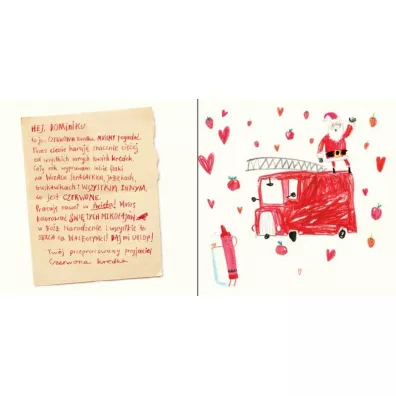 HEJ, DOMINIKU.
to ja, CZERWONA kredka. MUSIMY pogadać.
Przez ciebie haruję znacznie ciężej
od wszystkich innych twoich kredek.
Cały rok wypruwam sobie flaki
na WOZACH STRAŻACKICH, jabłkach,
truskawkach i WSZYSTKIM INNYM,
co jest CZERWONE.
Pracuję nawet w święta! Muszę
kolorować ŚWIĘTYCH MIKOŁAJÓW
w Boże Narodzenie i wszystkie te
SERCA na WALENTYNKI! DAJ MI URLOP!
Twój przepracowany przyjaciel
Czerwona kredka